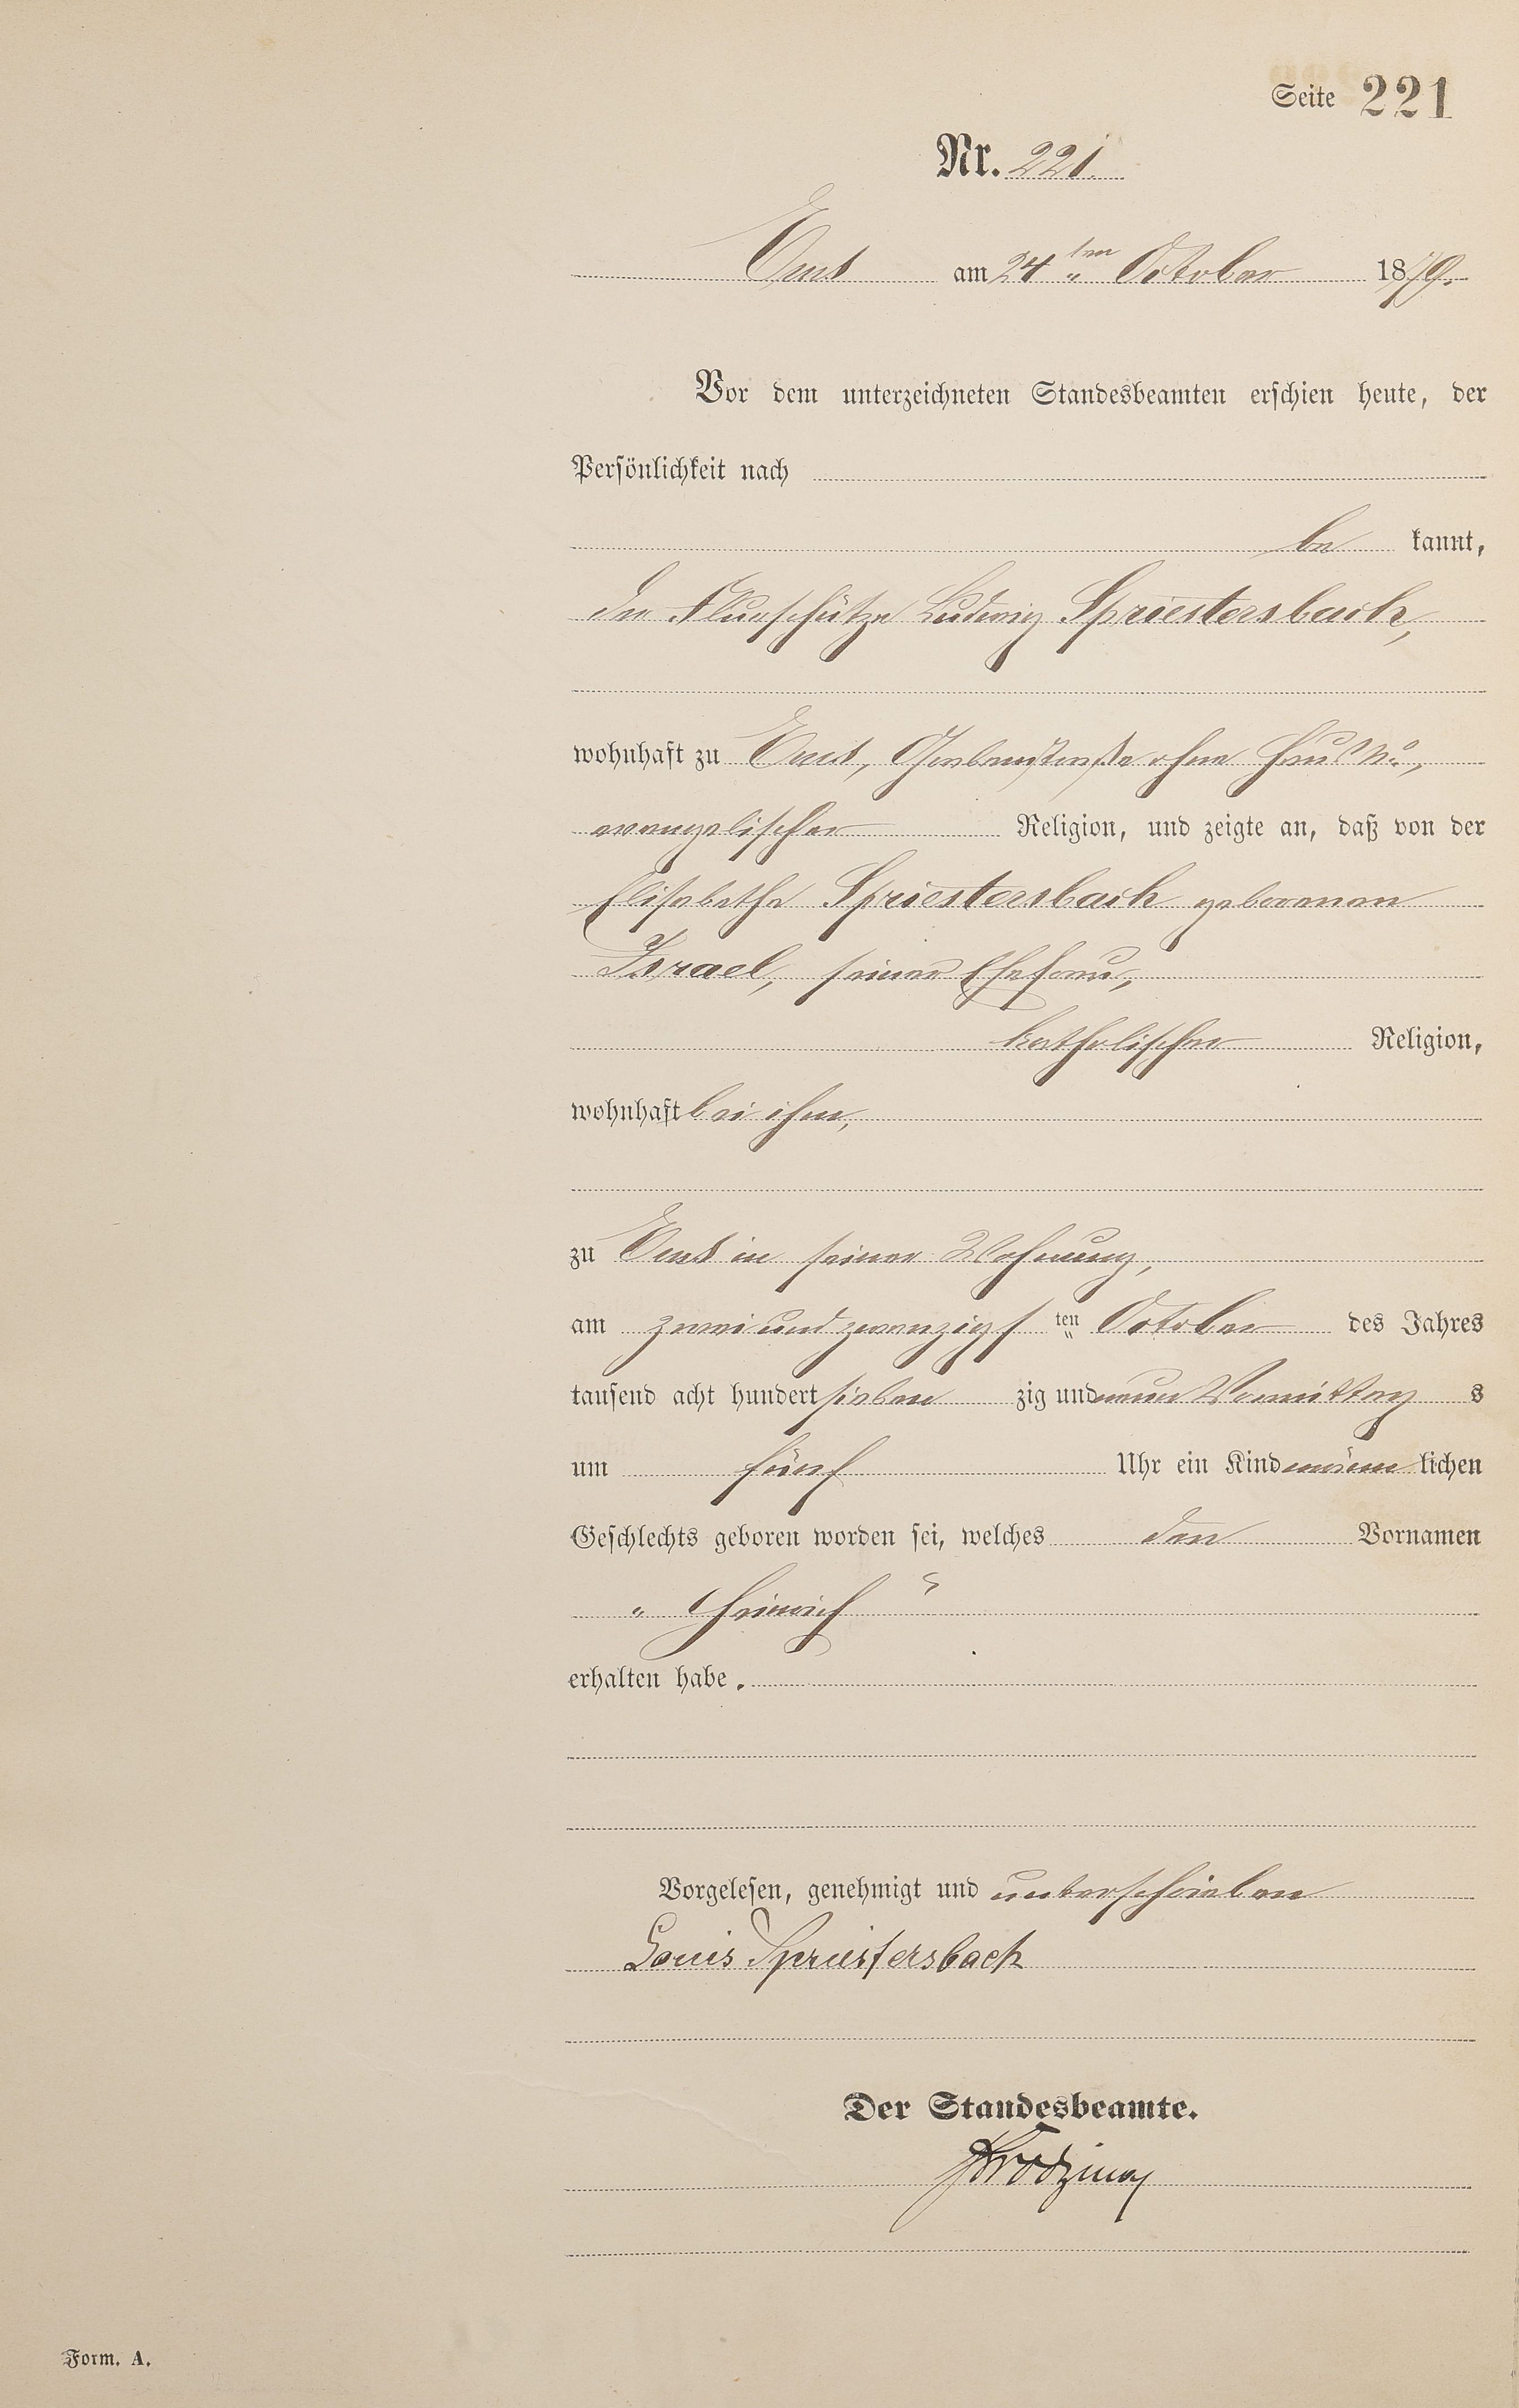 Seite 221
Nr. 221.
Ems am 24ten October 1879.
Vor dem unterzeichneten Standesbeamten erschien heute, der
Persönlichkeit nach
be kannt,
der Flurschütze Ludwig Spriestersbach,
wohnhaft zu Ems, Grabenstraße ohne Haus No,
evangelischer Religion, und zeigte an, daß von der
Elisabetha Spriestersbach geborenen
Israel, seiner Ehefrau,
katholischer Religion,
wohnhaft bei ihm,
zu Ems in seiner Wohnung,
am zwei und zwanzigs ten October des Jahres
tausend acht hundert sieben zig und neun Vormittag s
um fünf Uhr ein Kind männ lichen
Geschlechts geboren worden sei, welches den Vornamen
„ Heinrich “
erhalten habe.
Vorgelesen, genehmigt und unterschrieben
Louis Spriestersbach
Der Standesbeamte.
Form. A.